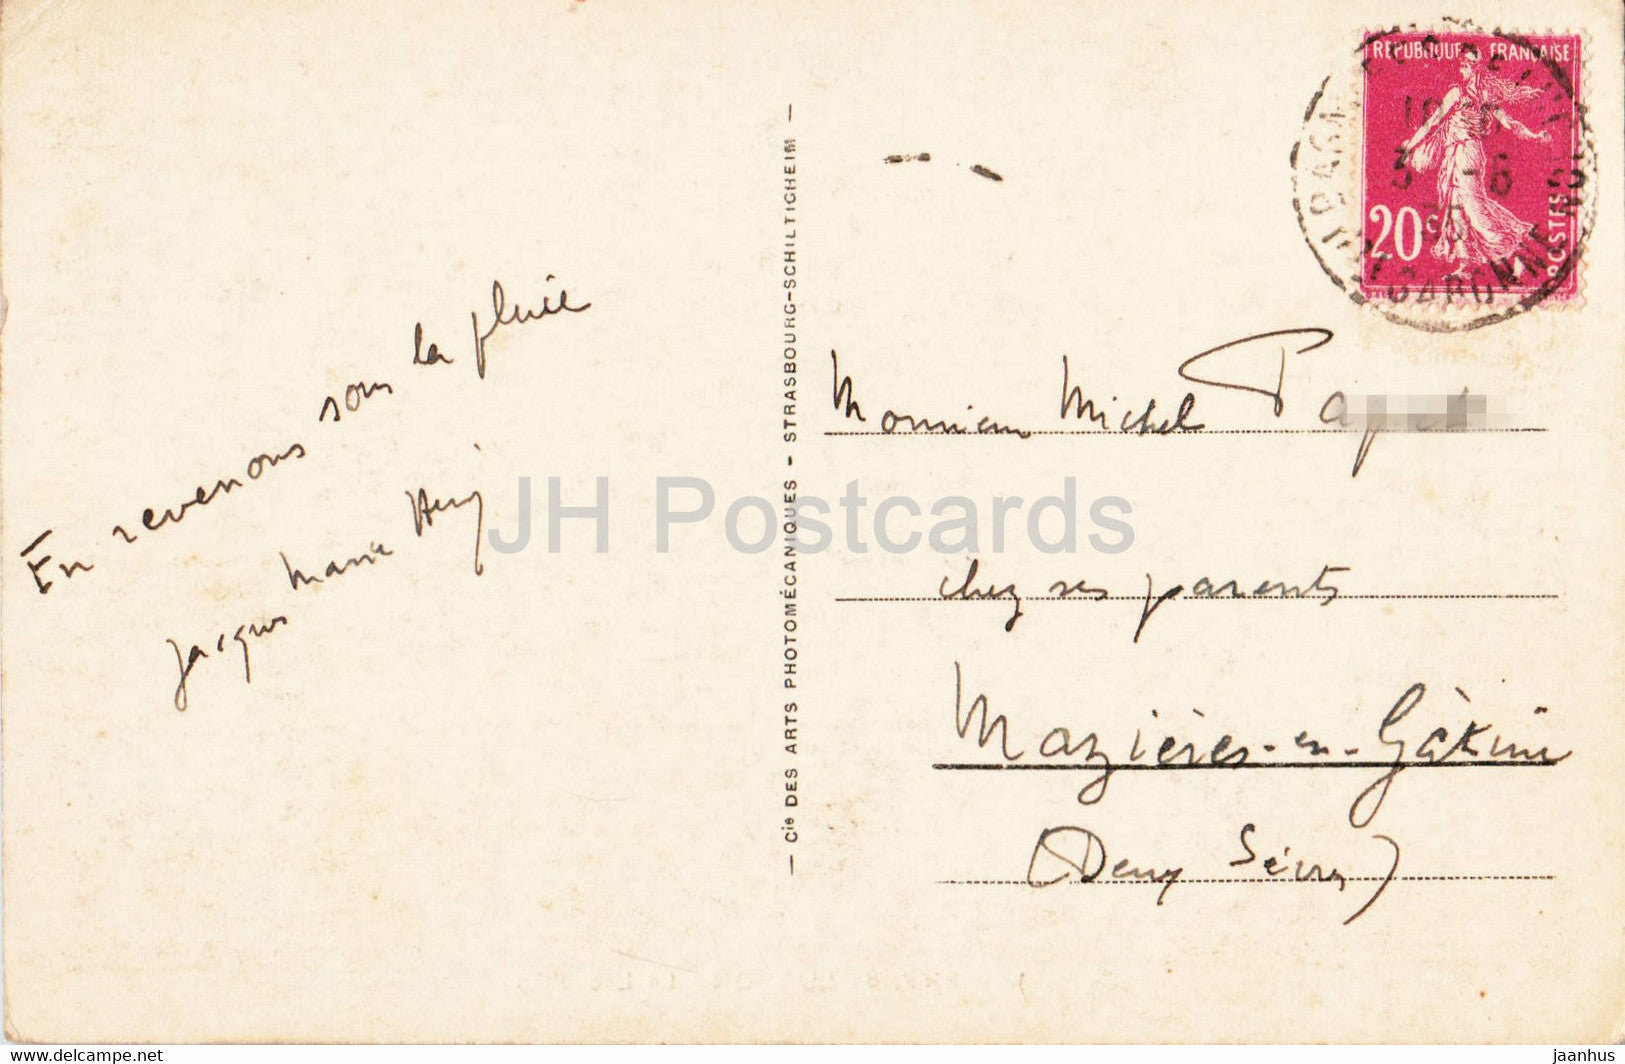 RÉPUBLIQUE FRANÇAISE
20c
POSTES
3 -6
35
GARONNE
En revenons sous la pluie
Jacques Marie Henry
— Cie DES ARTS PHOTOMÉCANIQUES - STRASBOURG-SCHILTIGHEIM —
Monsieur Michel
chez ses parents
Mazières-en-Gâtine
(Deux Sèvres)
JH Postcards
delcampe.net
jaanhus